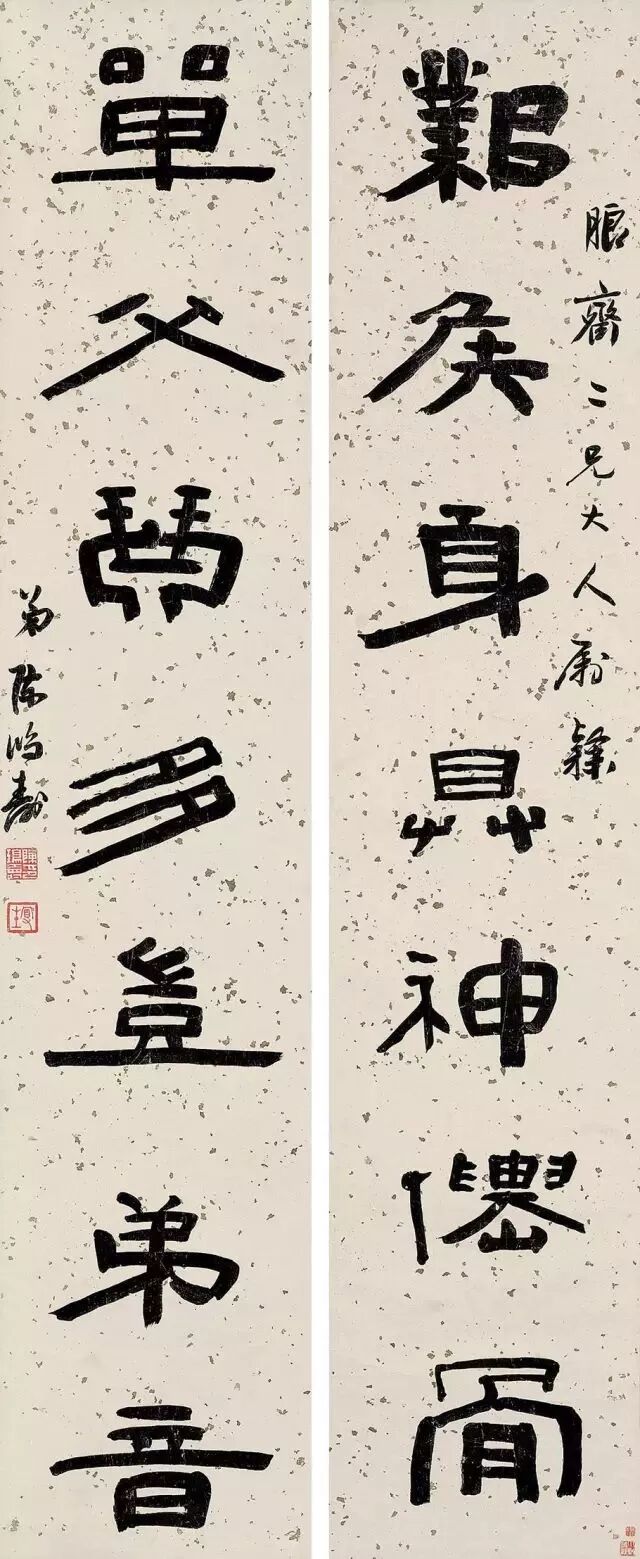 朖齋二兄大人屬隸
鄴侯身具神僊骨
單父琴多豈弟音
弟陳鴻壽